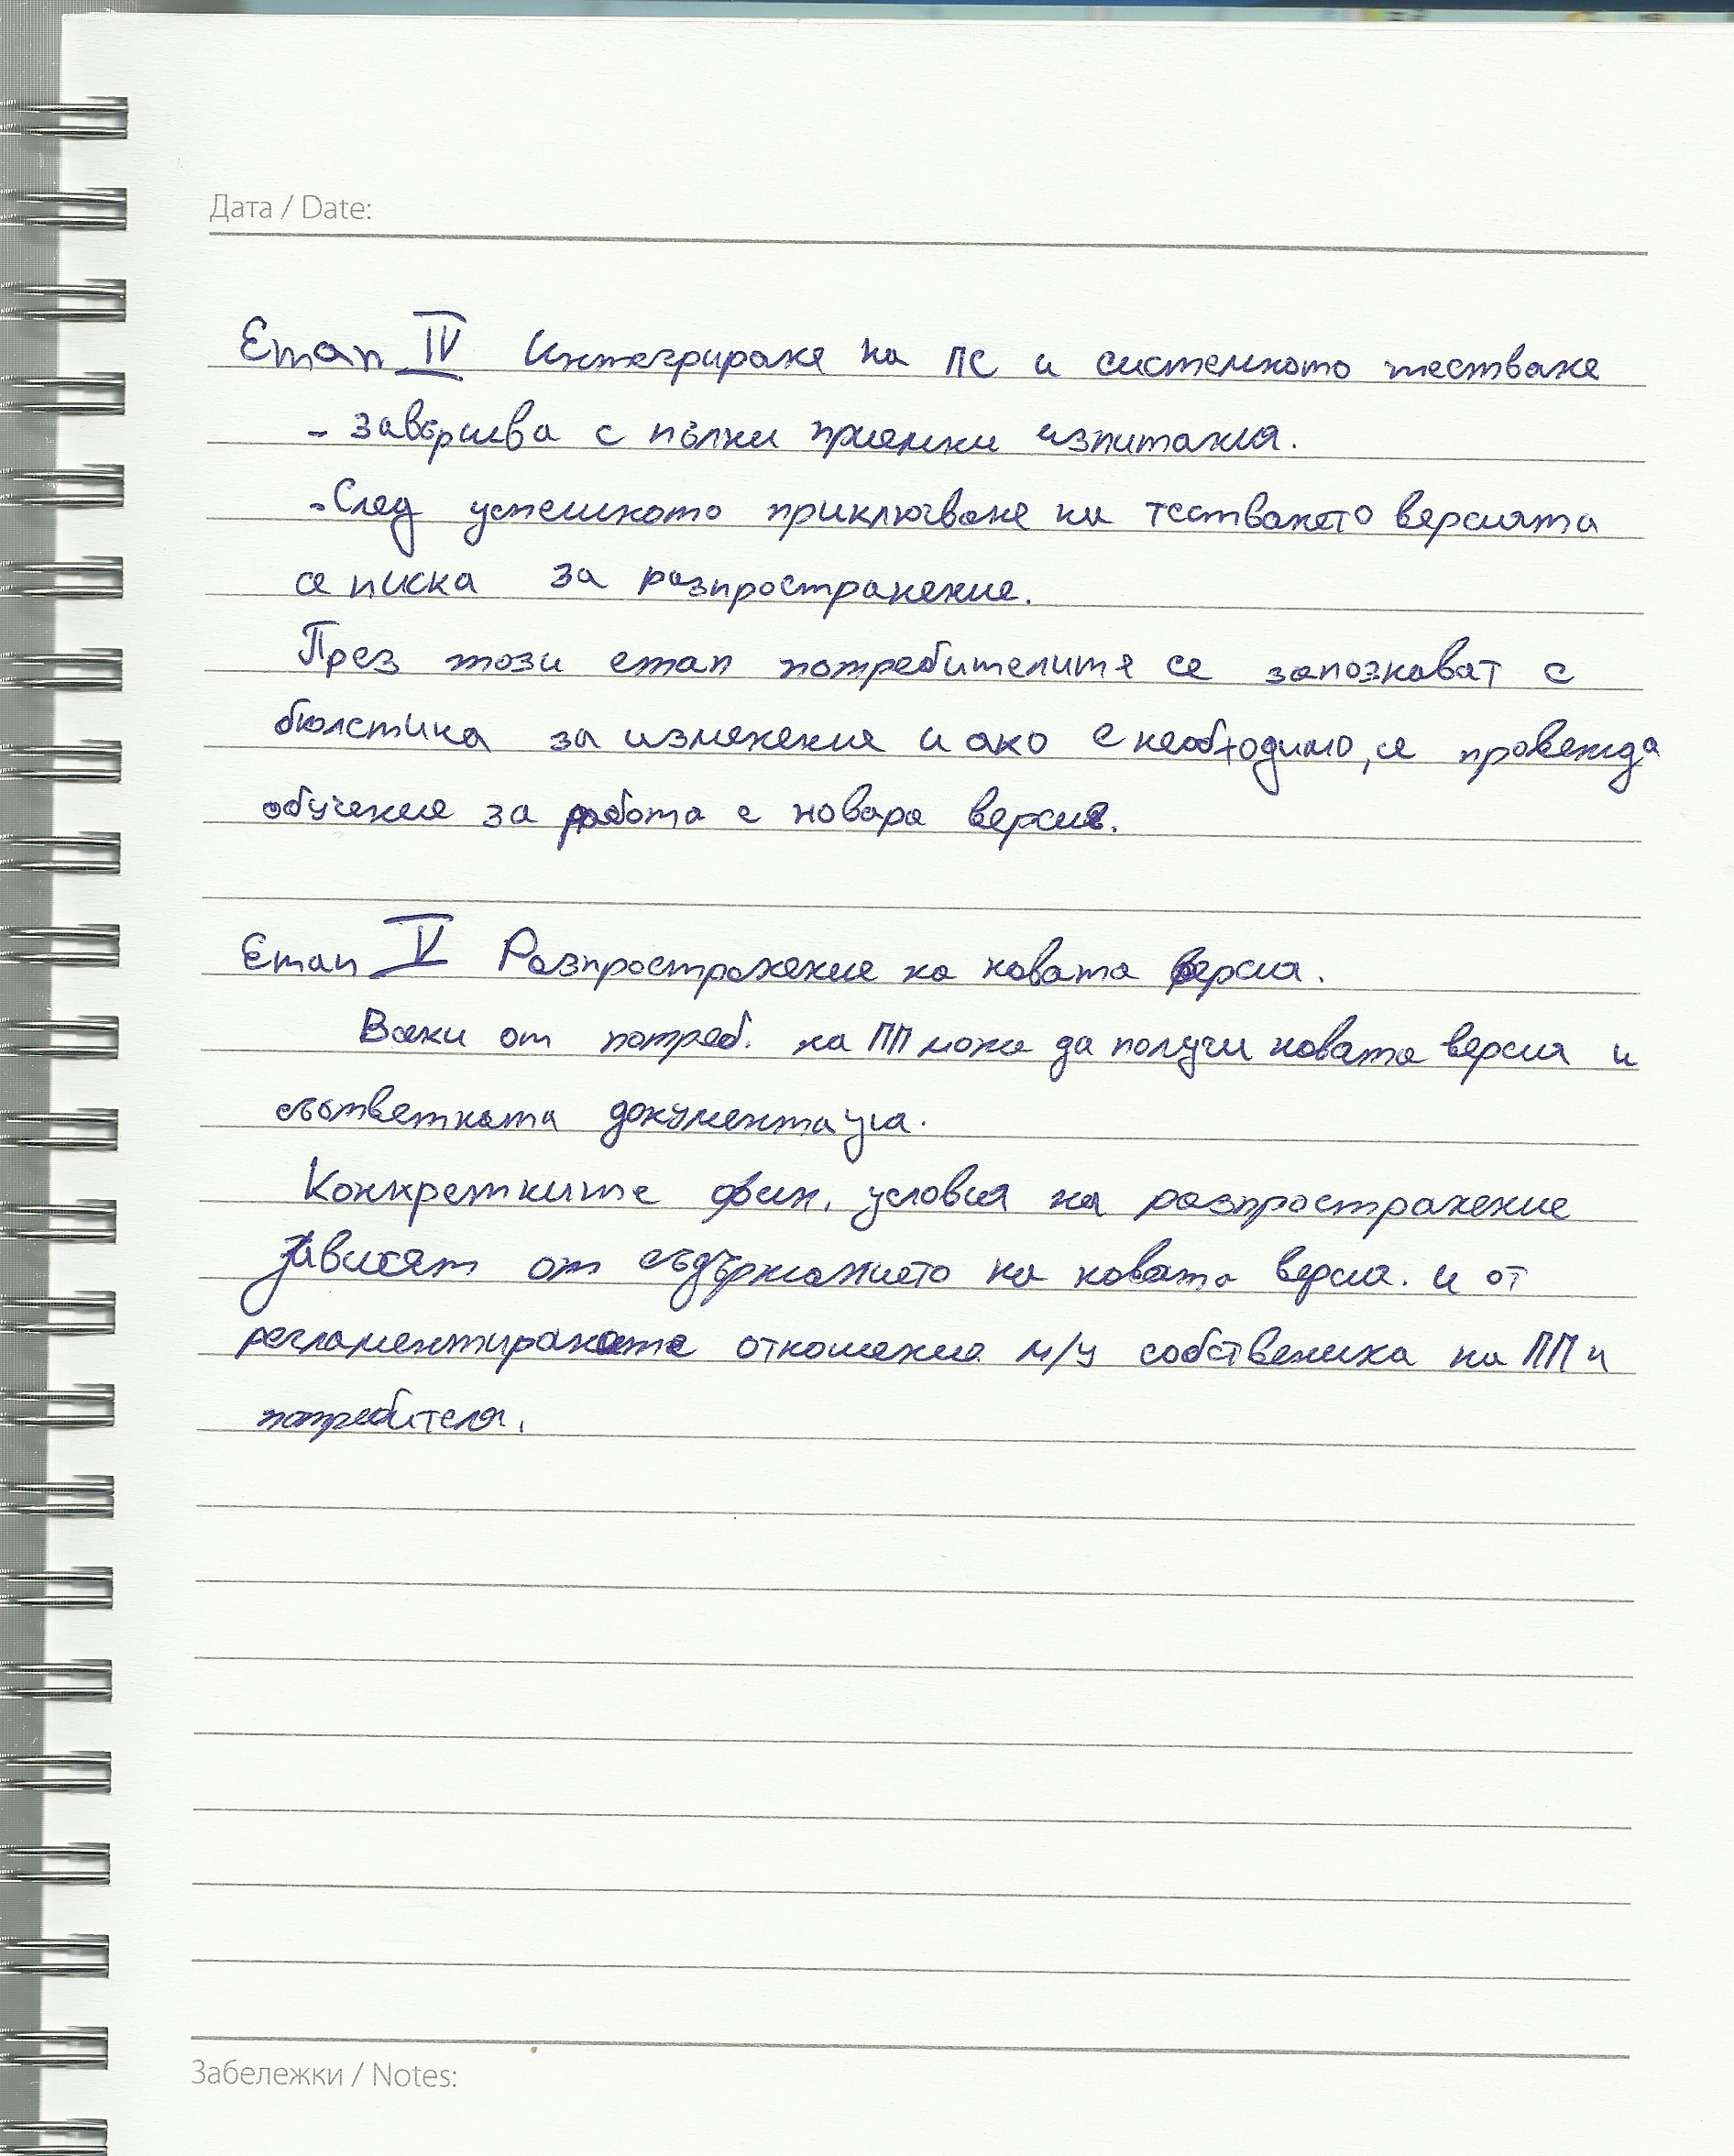 Дата / Date:
Етап IV Интегриране на ПС и системното тестване
- завършва с пълни приемни изпитания.
- След успешното приключване на тестването версията
се писка за разпространение.
През този етап потребителите се запознават с
бюлетина за изменение и ако е необходимо, се провежда
обучение за работа с новара версия.
Етап V Разпространение на новата версия.
Всеки от потреб. на ПП може да получи новата версия и
съответната документация.
Конкретните фин. условия на разпространение
зависят от съдържанието на новата версия. и от
регламентираните отношения м/у собственика на ПП и
потребителя.
Забележки / Notes: